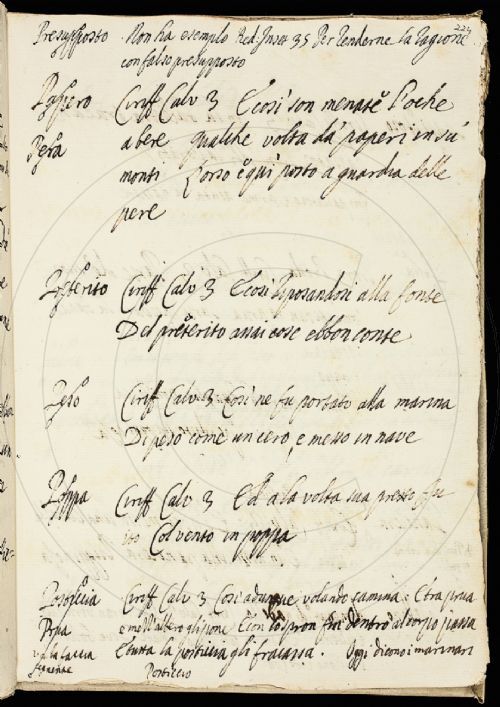 224
Presupposto Non ha esemplo Red. Inset 35 Per renderne la ragione
con falso presupposto
Ciriff Calv 3 E così son menate l'oche
Pera a bere qualche volta da' paperi in su'
monti L'orso è qui posto a guardia delle
pere
Preterito Ciriff Calv 3 E così riposandosi alla fonte
Del preterito assai cose ebbon conte
Peso Ciriff Calv 3 Così ne fu portato alla marina
Di peso come un cero, e messo in nave
Poppa Ciriff Calv 3 Ed a la volta sua presto
ito Col vento in poppa
Ciriff Calv 3 Così adunque volando camina
e con lo spron fier dentro al corpo passa
E tutta la gli fracassa. Oggi dicono i marinari
Portello